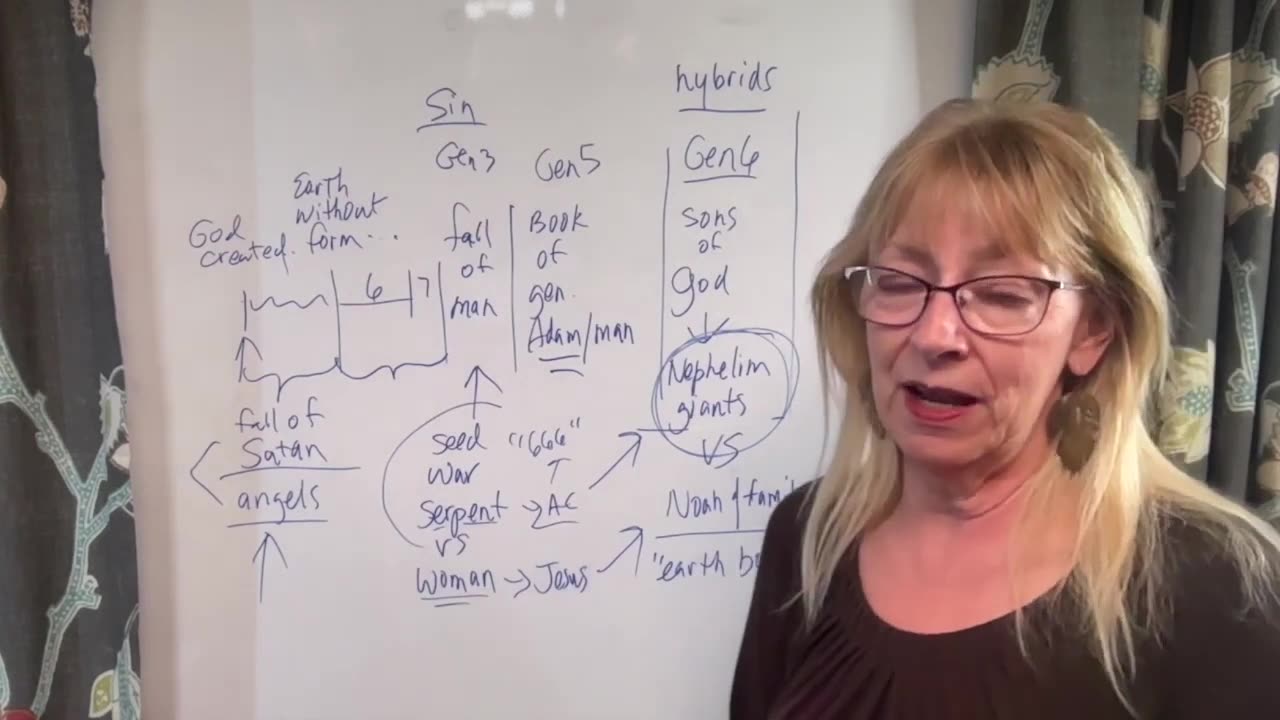 Sin
Gen3
Earth
without
form...
God
created.
6
7
fall
of
man
Gen5
Book
of
gen.
Adam/man
hybrids
Gen6
sons
of
god
Nephelim
giants
VS
Noah & fami
"earth b
fall of
Satan
angels
seed
war
serpent → AC
vs
woman → Jesus
"666"